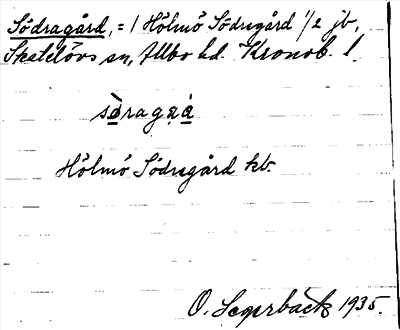 Södragård, = 1 Hölmö Södragård 1/2 jb,
Skatelövs sn, Allbo hd. Kronob. l.
Hölmö Södragård kb.
O. Segerbäck 1935.